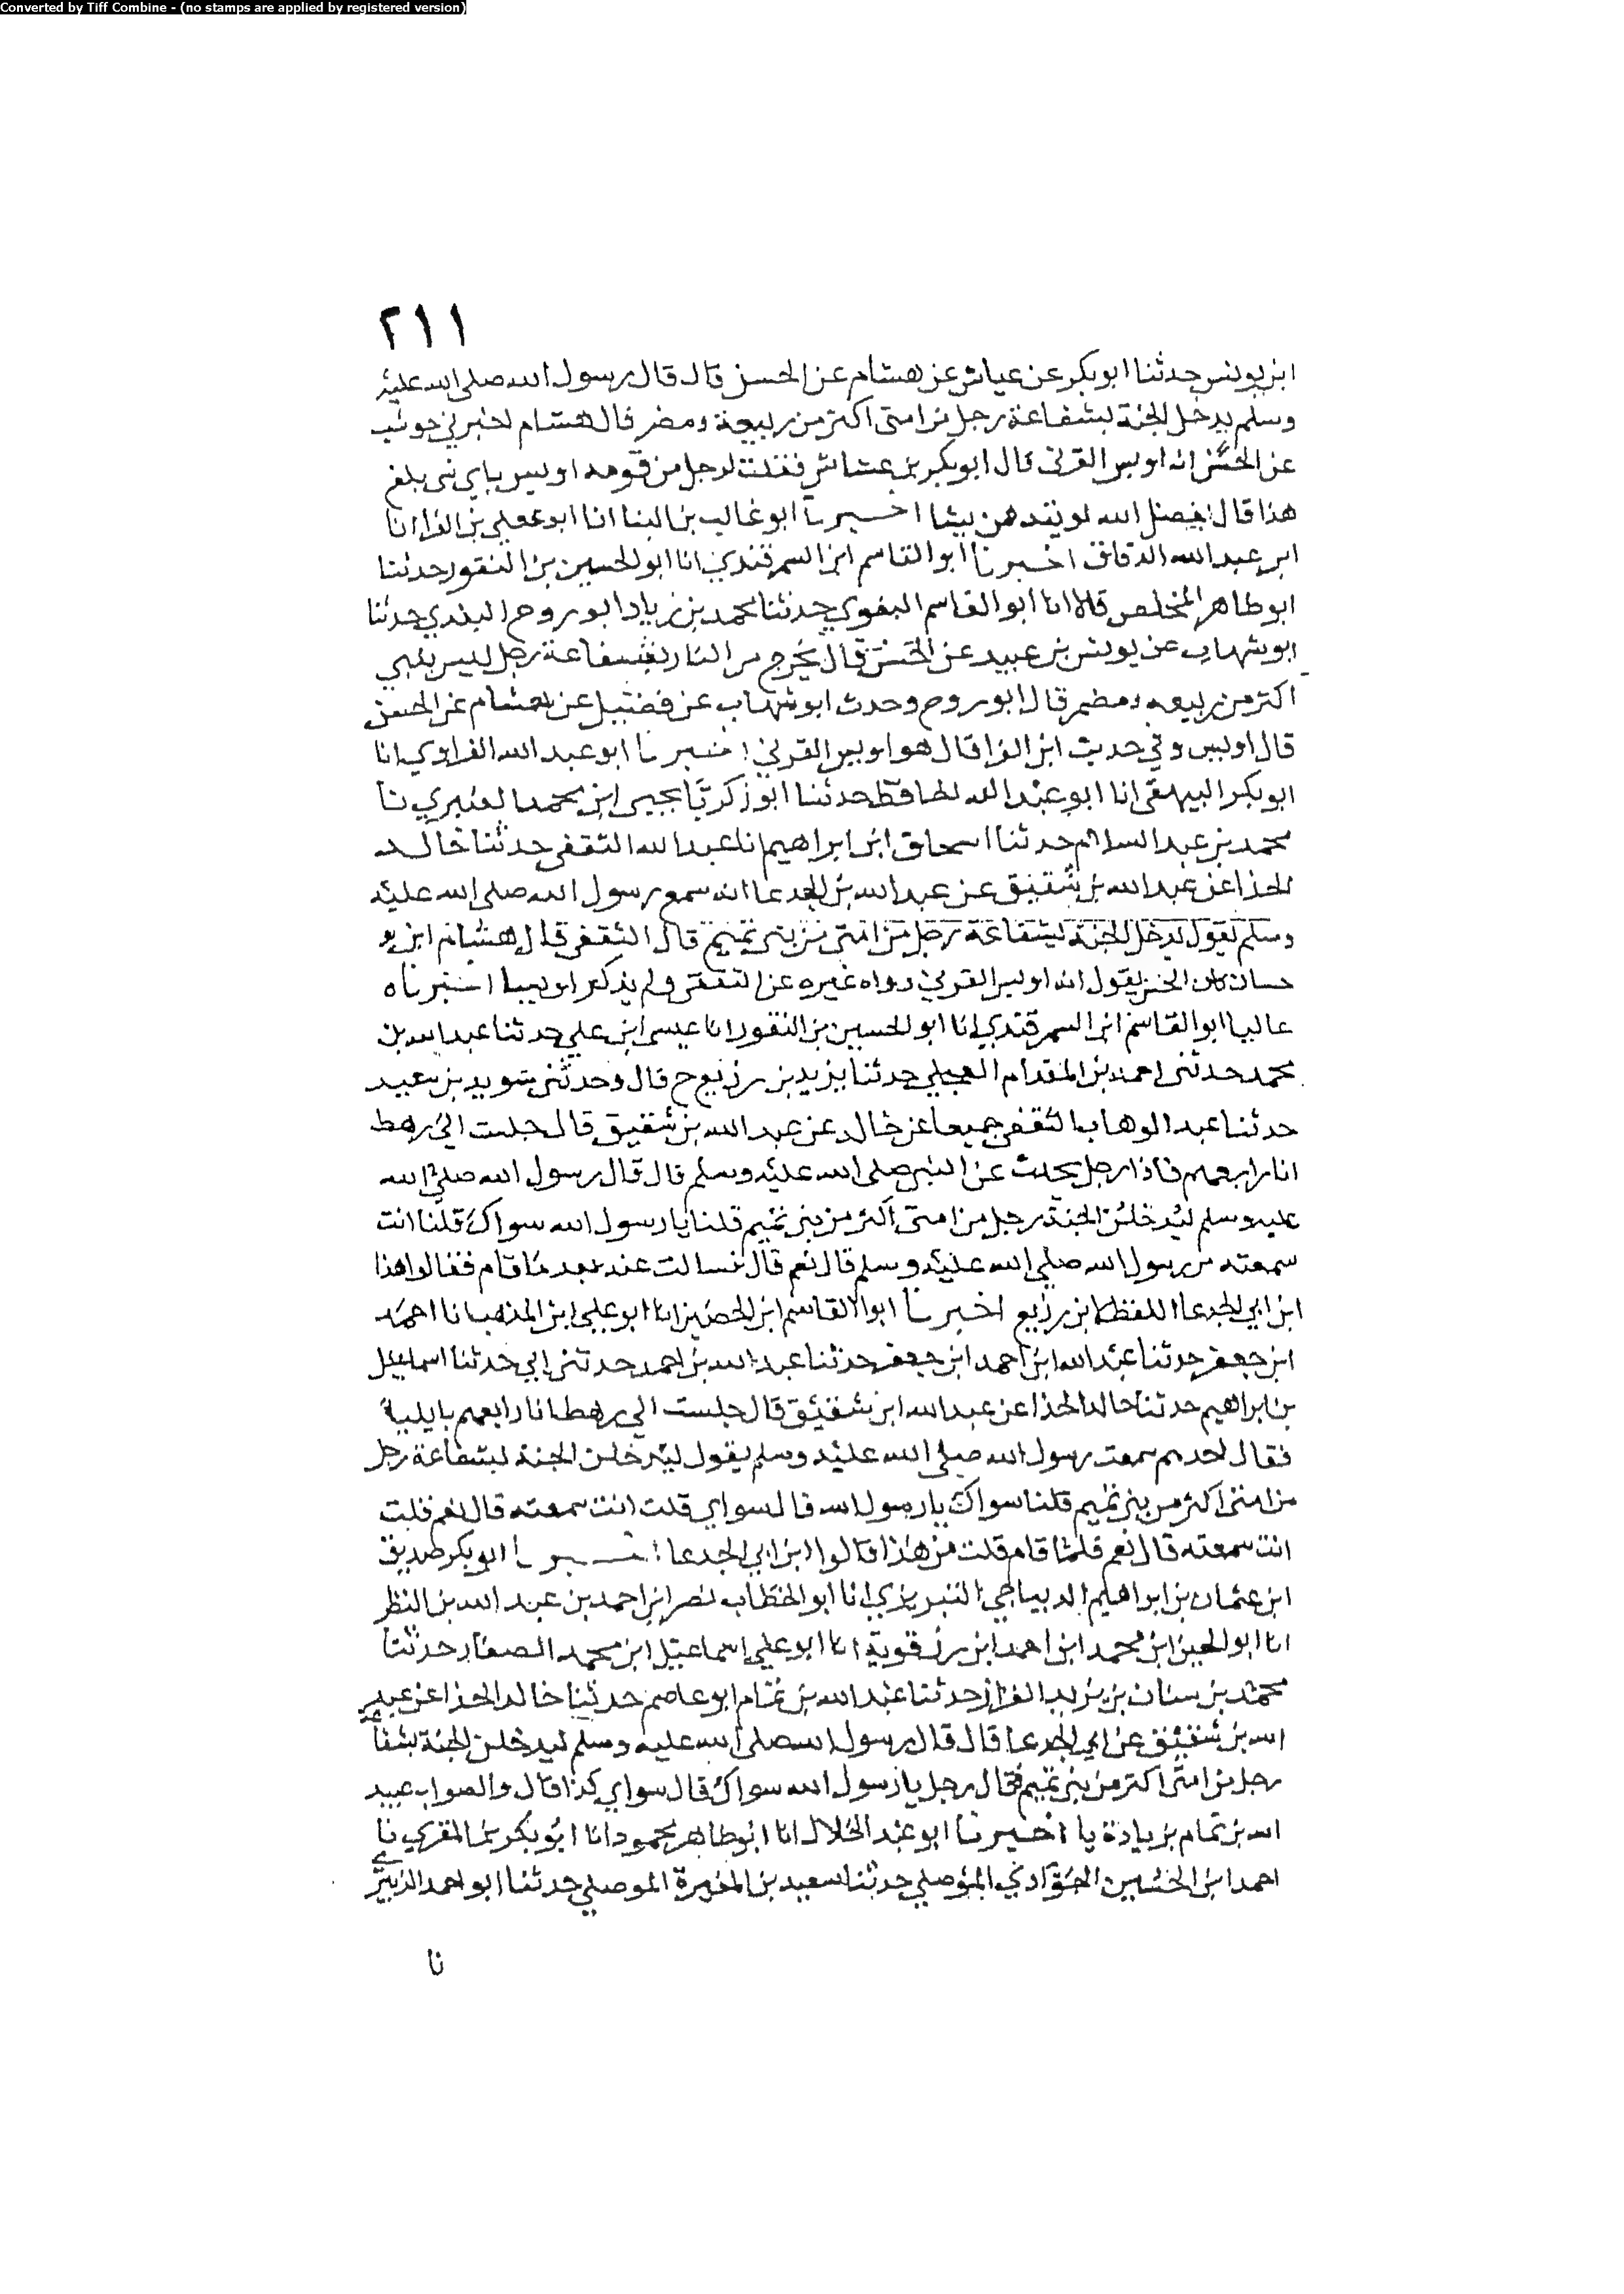 Converted by Tiff Combine - (no stamps are applied by registered version)
٢١١
ابن يونس حدثنا ابو بكر عن عياش عن هشام عن الحسن قال قال رسول الله صلى الله عليه
وسلم يدخل الجنة بشفاعة رجل من امتى اكثر من ربيعة ومضر قال هشام اخبرني حوشب
عن الحسن انه اويس القرني قال ابو بكر بن عياش فقلت لرجل من قومه اويس باي شى بلغ
هذا قال بفضل الله اخبرنا ابو غالب بن البنا انا ابو يعلى بن الفرا انا
ابن عبد الله الدقاق اخبرنا ابو القاسم ابن السمرقندي انا ابو الحسين بن النقور حدثنا
ابو طاهر المخلص قالا انا ابو القاسم البغوي حدثنا محمد بن زياد ابو روح البلدي حدثنا
ابو شهاب عن يونس بن عبيد عن الحسن قال يخرج من النار بشفاعة رجل ليس بنبي
اكثر من ربيعه ومضر قال ابو روح وحدث ابو شهاب عن فضيل عن هشام عن الحسن
قال اويس وفي حديث ابن الفرا قال هو اويس القرني اخبرنا ابو عبد الله الفراوي انا
ابو بكر البيهقى انا ابو عبد الله الحافظ حدثنا ابو زكريا يحيى ابن محمد العنبري نا
محمد بن عبد السلام حدثنا اسحاق ابن ابراهيم انا عبد الله الثقفى حدثنا خالد
الحذا عن عبد الله بن شقيق عن عبد الله بن الجدعا انه سمع رسول الله صلى الله عليه
وسلم يقول يدخل الجنة بشفاعة رجل من امتى من بنى تميم قال الثقفى قال هشام ابن
حسان كان الحسن يقول انه اويس القرني رواه غيره عن الثقفى ولم يذكر اويسا اخبرناه
عاليا ابو القاسم ابن السمرقندي انا ابو الحسين بن النقور انا عيسى ابن علي حدثنا عبد الله بن
محمد حدثنى احمد بن المقدام العجلي حدثنا يزيد بن زريع ح قال وحدثنى سويد بن سعيد
حدثنا عبد الوهاب الثقفى جميعا عن خالد عن عبد الله بن شقيق قال جلست الى رهط
انا رابعهم فاذا رجل يحدث عن النبي صلى الله عليه وسلم قال قال رسول الله صلى الله
عليه وسلم ليدخلن الجنة رجل من امتى اكثر من بنى تميم قلنا يا رسول الله سواك قلنا انت
سمعته من رسول الله صلى الله عليه وسلم قال نعم قال فسالت عنه بعد ما قام فقالوا هذا
ابن ابي الجدعا اللفظ لابن زريع اخبرنا ابوالقاسم ابن الحصين انا ابو علي ابن المذهب انا احمد
ابن جعفر حدثنا عبد الله ابن احمد ابن جعفر حدثنا عبد الله بن احمد حدثنى ابي حدثنا اسماعيل
بن ابراهيم حدثنا خالد الحذا عن عبد الله ابن شقيق قال جلست الى رهط انا رابعهم بايلياء
فقال احدهم سمعت رسول الله صلى الله عليه وسلم يقول ليدخلن الجنة بشفاعة رجل
من امتى اكثر من بنى تميم قلنا سواك يا رسول الله قال سواي قلت انت سمعته قال نعم قلت
انت سمعته قال نعم فلما قام قلت من هذا قالوا ابن ابي الجدعا اخبرنا ابو بكر صديق
ابن عثمان بن ابراهيم الديباجي التبريزي انا ابو الخطاب نصر ابن احمد بن عبد الله بن النظر
انا ابو الحسن ابن محمد ابن احمد ابن رزقوية انا ابو علي اسماعيل ابن محمد الصفار حدثنا
محمد بن سنان بن يزيد القزاز حدثنا عبد الله بن تمام ابو عاصم حدثنا خالد الحذا عن عبد
الله بن شقيق عن ابي الجدعا قال قال رسول الله صلى الله عليه وسلم ليدخلن الجنة بشفاعة
رجل من امتى اكثر من بنى تميم فقال رجل يا رسول الله سواك قال سواي كذا قال والصواب عبيد
الله بن تمام بزيادة يا اخبرنا ابو عبد الخلال انا ابو طاهر محمود انا ابو بكر بن المقري نا
احمد ابن الحسين الموصلي حدثنا سعيد بن المغيرة الموصلي حدثنا ابو احمد الزبيري
نا